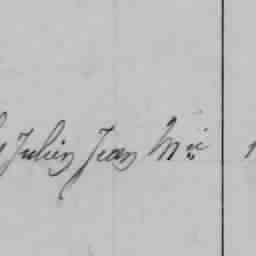 Julien Jean M